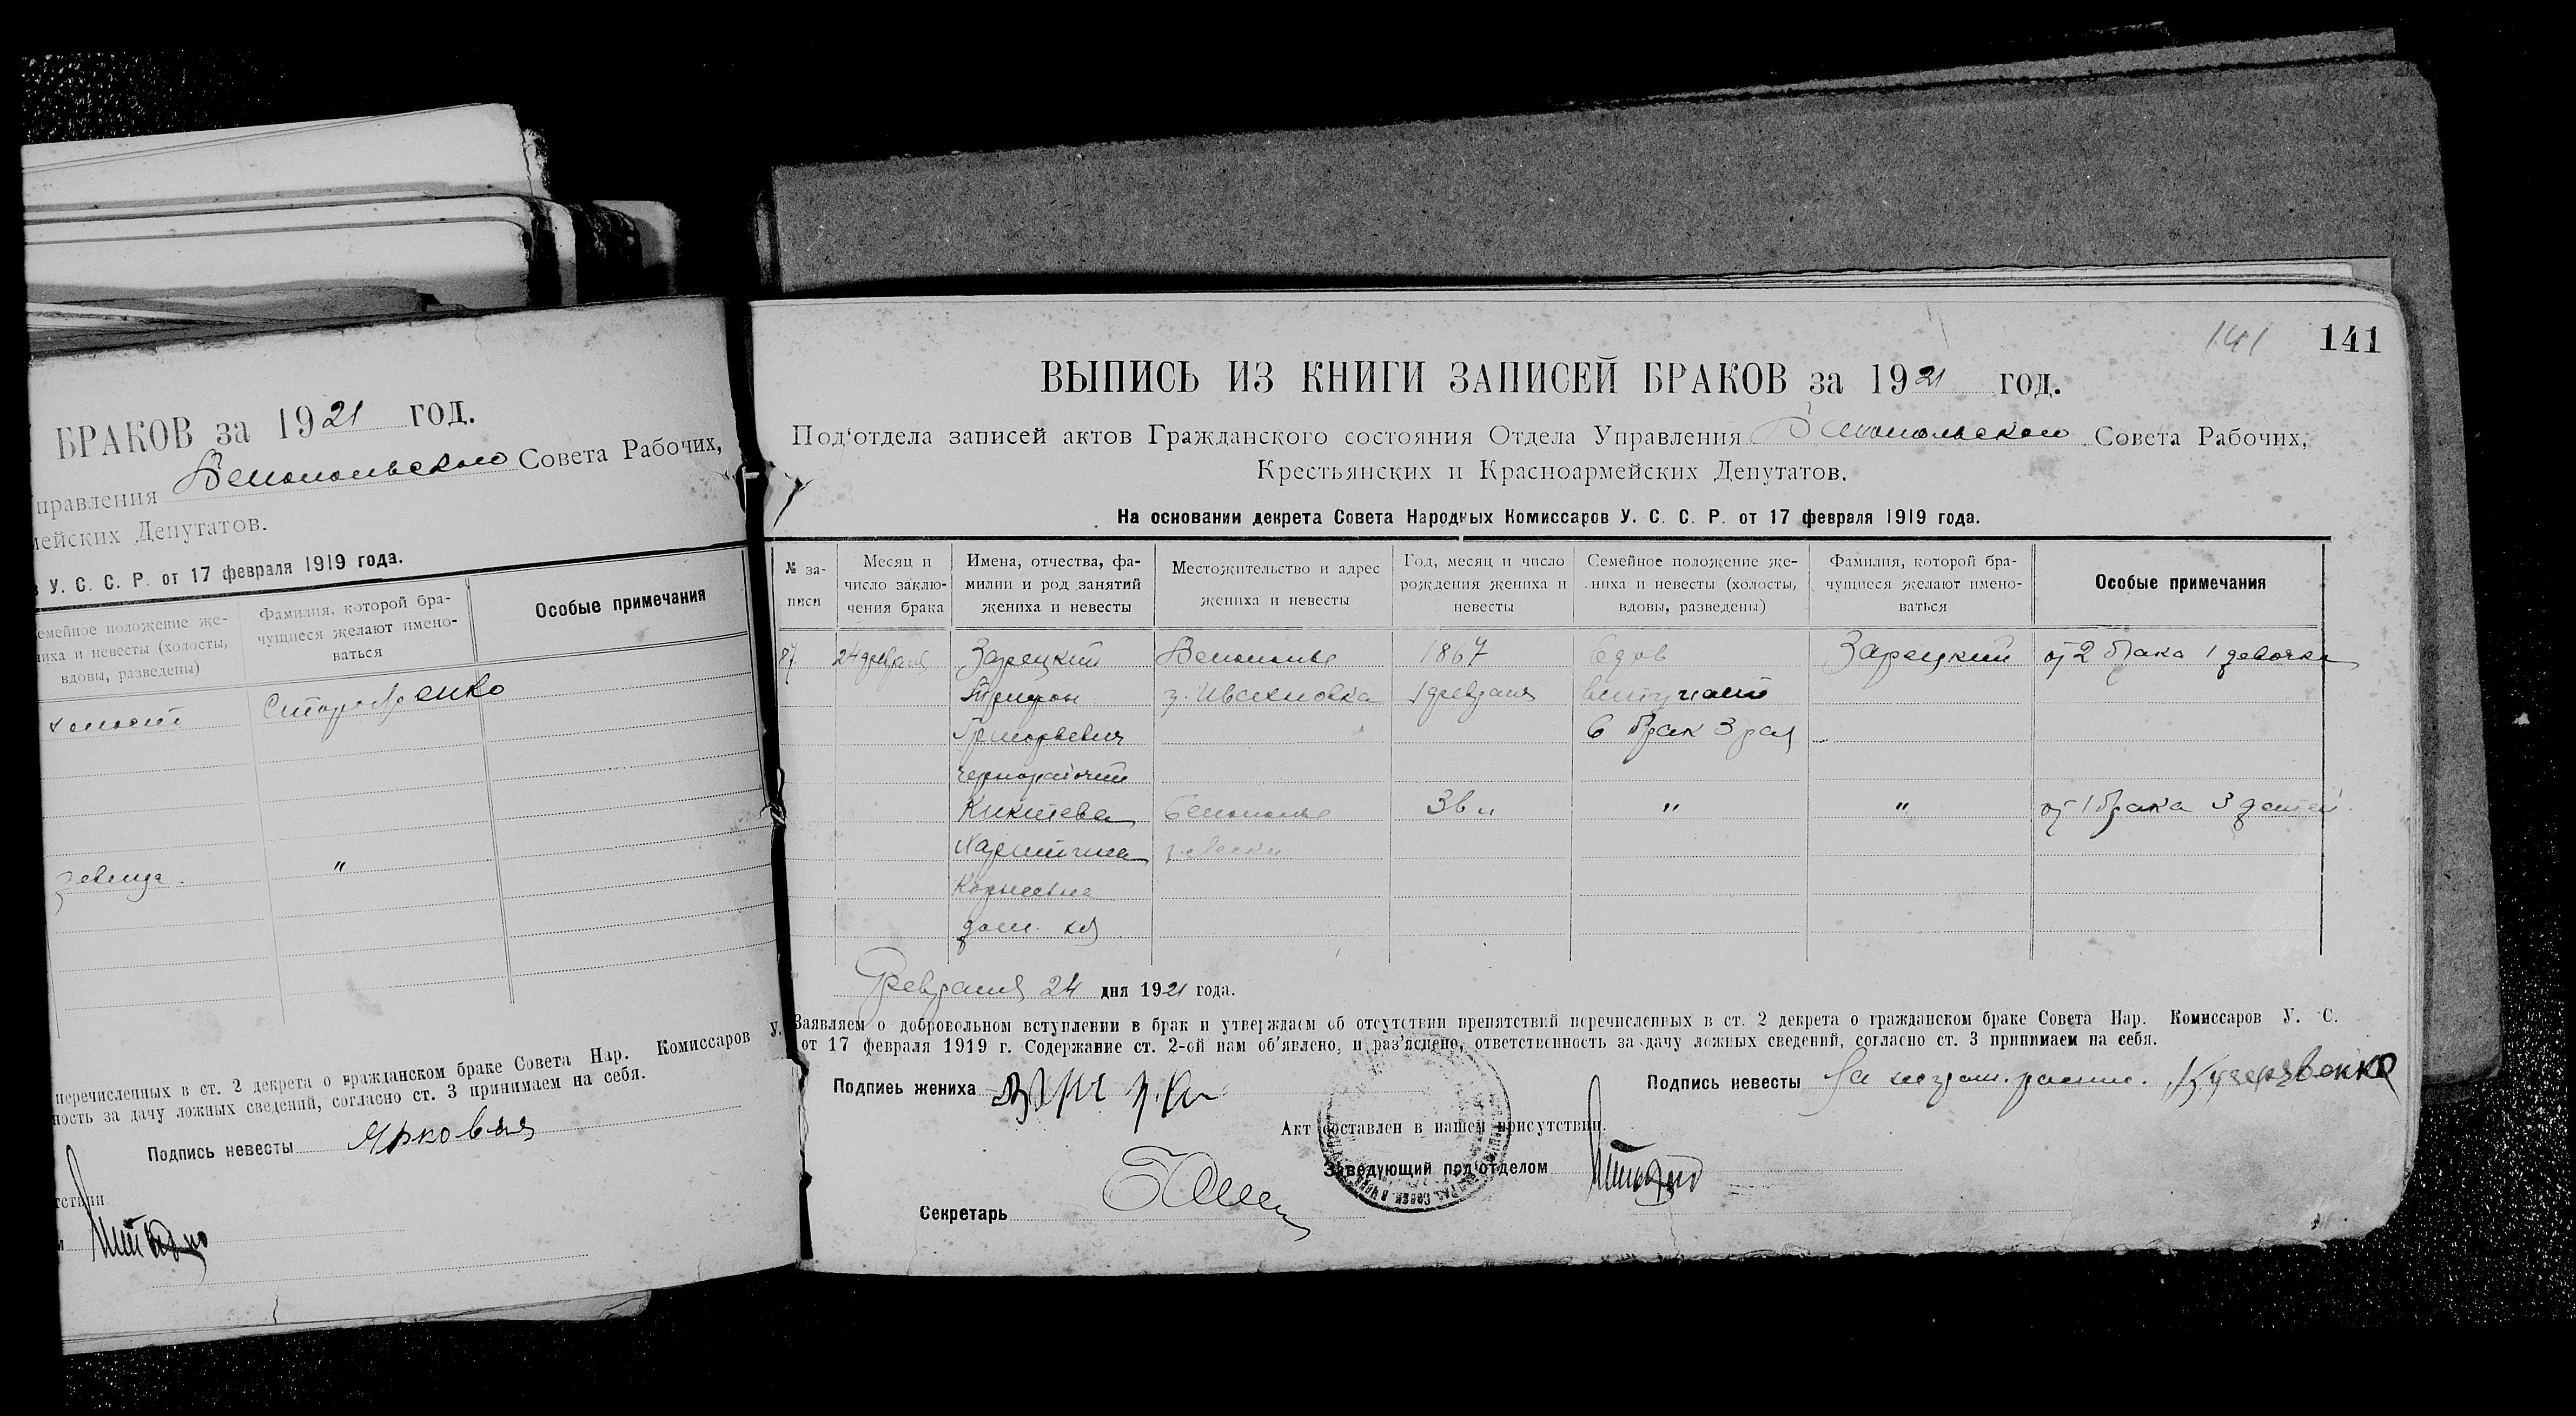 БРАКОВ за 1921 год.
правления Велопольского Совета Рабочих,
мейских Депутатов.
в У. С. С. Р. от 17 февраля 1919 года.
Семейное положение же-
ниха и невесты (холосты,
вдовы, разведены)
Фамилия, которой бра-
чущиеся желают имено-
ваться
Особые примечания
холост
девица.
"
перечисленных в ст. 2 декрета о гражданском браке Совета Нар. Комиссаров У.
ность за дачу ложных сведений, согласно ст. 3 принимаем на себя.
Подпись невесты Ярковая
тствии
141 141
ВЫПИСЬ ИЗ КНИГИ ЗАПИСЕЙ БРАКОВ за 1921 год.
Под‘отдела записей актов Гражданского состояния Отдела Управления Велопольского Совета Рабочих,
Крестьянских и Красноармейских Депутатов.
На основании декрета Совета Народных Комиссаров У. С. С. Р. от 17 февраля 1919 года.
№ за-
писи
Месяц и
число заклю-
чения брака
Имена, отчества, фа-
милии и род занятий
жениха и невесты
Местожительство и адрес
жениха и невесты
Год, месяц и число
рождения жениха и
невесты
Семейное положение же-
ниха и невесты (холосты,
вдовы, разведены)
Фамилия, которой бра-
чущиеся желают имено-
ваться
Особые примечания
87 24 февраля Зарецкий Велополье 1867 вдов Зарецкий от 2 брака 1 девочка
Трифон 1 февраля вступает
Григорьевич в брак 3 раз
чернорабочий
Никитева Велополье 36 л " " от 1 брака 3 детей
Харитина
Корнеевна
дом. хоз
Февраля 24 дня 1921 года.
Заявляем о добровольном вступлении в брак и утверждаем об отсутствии препятствий перечисленных в ст. 2 декрета о гражданском браке Совета Нар. Комиссаров У. С.
от 17 февраля 1919 г. Содержание ст. 2-ой нам об’явлено, и раз’яснено, ответственность за дачу ложных сведений, согласно ст. 3 принимаем на себя.
Подпись жениха
Подпись невесты За неграм. распис. Кучерявенко
Акт составлен в нашем присутствии.
Заведующий под‘отделом
Секретарь